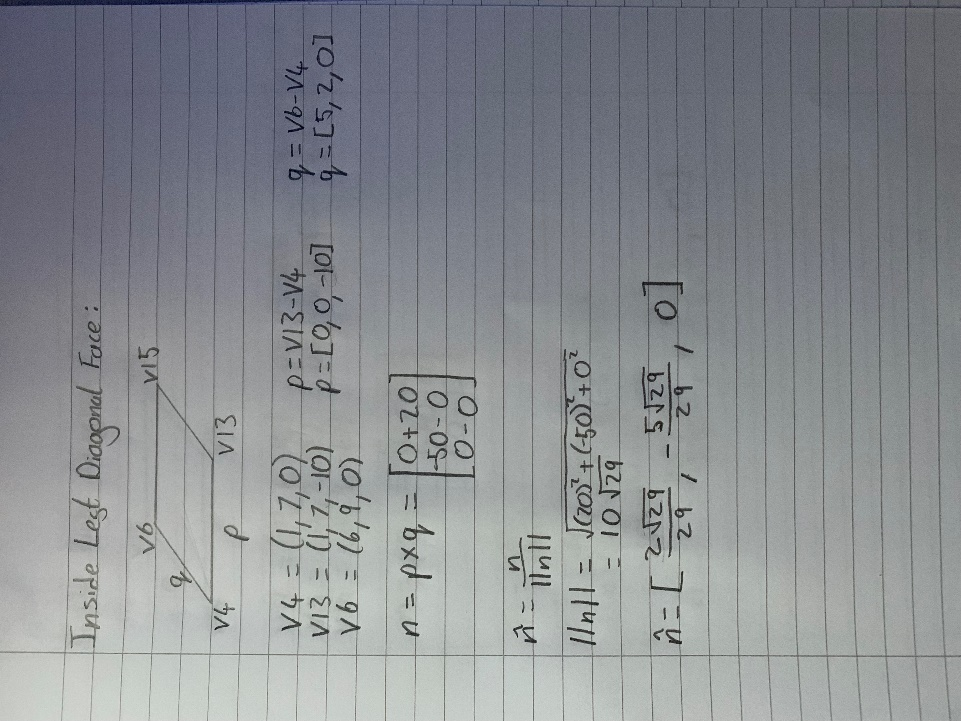 Inside Left Diagonal Face:
V6 V15
q
V4 V13
p
V4 = (1, 7, 0) p = V13-V4 q = V6-V4
V13 = (1, 7, -10) p = [0, 0, -10] q = [5, 2, 0]
V6 = (6, 9, 0)
n = p×q = [0+20
-50-0
0-0]
n̂ = n/||n||
||n|| = √(20)²+(-50)²+0²
= 10√29
n̂ = [2√29/29, -5√29/29, 0]